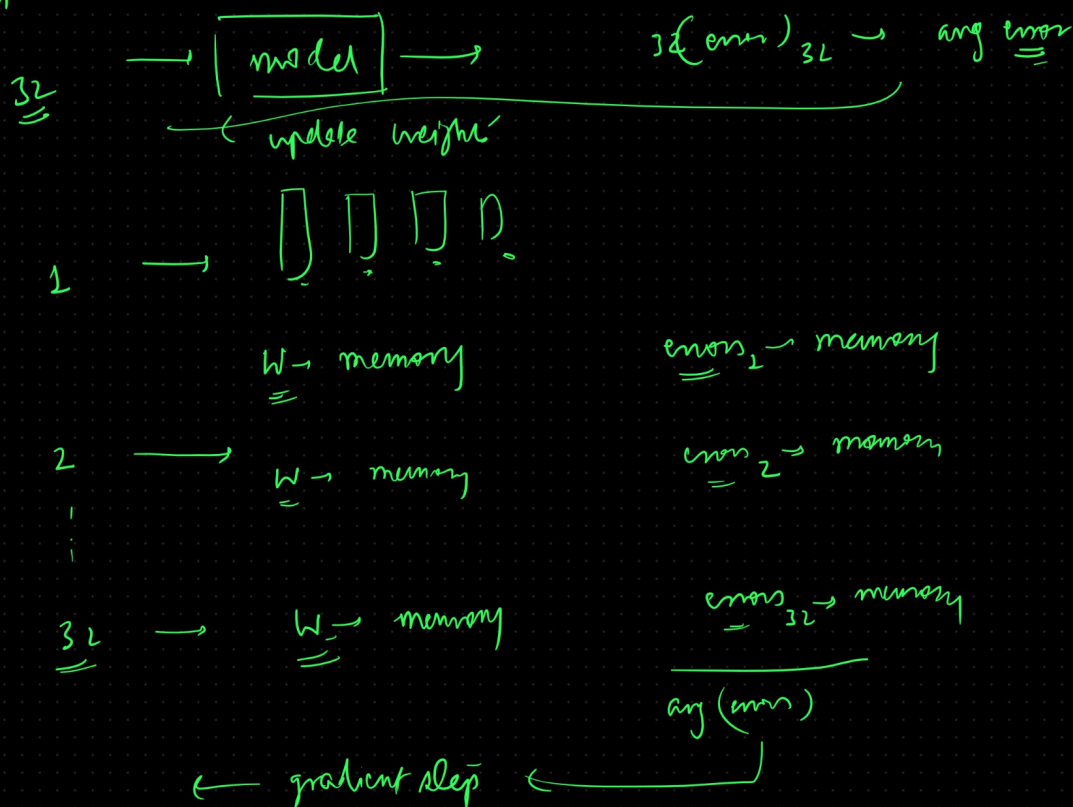 32 → model → 32(error)32 → avg error
← update weights
1 →
W → memory errors1 → memory
2 → W → memory errors2 → memory
32 → W → memory errors32 → memory
avg (errors)
← gradient step ←